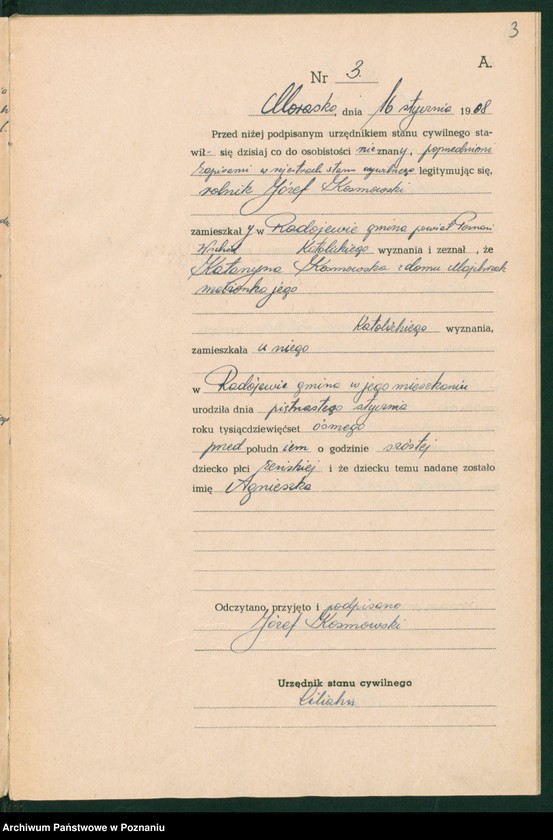 3
A.
Nr 3.
Morasko, dnia 16 stycznia 1908
Przed niżej podpisanym urzędnikiem stanu cywilnego sta-
wił- się dzisiaj co do osobistości nieznany, poprzedniemi
zapisami w rejestrach stanu cywilnego legitymując się,
rolnik Józef Kosmowski
zamieszkały w Radojewie gmina powiat Poznań
Wschód Katolickiego wyznania i zeznał, że
Katarzyna Kosmowska z domu
małżonka jego
Katolickiego wyznania,
zamieszkała u niego
w Radojewie gmina w jego mieszkaniu
urodziła dnia piętnastego stycznia
roku tysiącdziewięćset ósmego
przed południem o godzinie szóstej
dziecko płci żeńskiej i że dziecku temu nadane zostało
imię Agnieszka
Odczytano, przyjęto i podpisano
Józef Kosmowski
Urzędnik stanu cywilnego
Archiwum Państwowe w Poznaniu